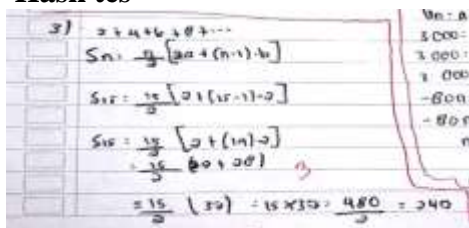 Hasil tes
3) 2+4+6+8+...
Sn = n/2 [2a + (n-1).b]
S15 = 15/2 [2 + (15-1)-2]
S15 = 15/2 [2 + (14)-2]
= 15/2
= 15/2 (32) = 15 x 32 = 480/2 = 240
3
Un = a
3 000 =
3 000 =
3 000
-800
-800
n